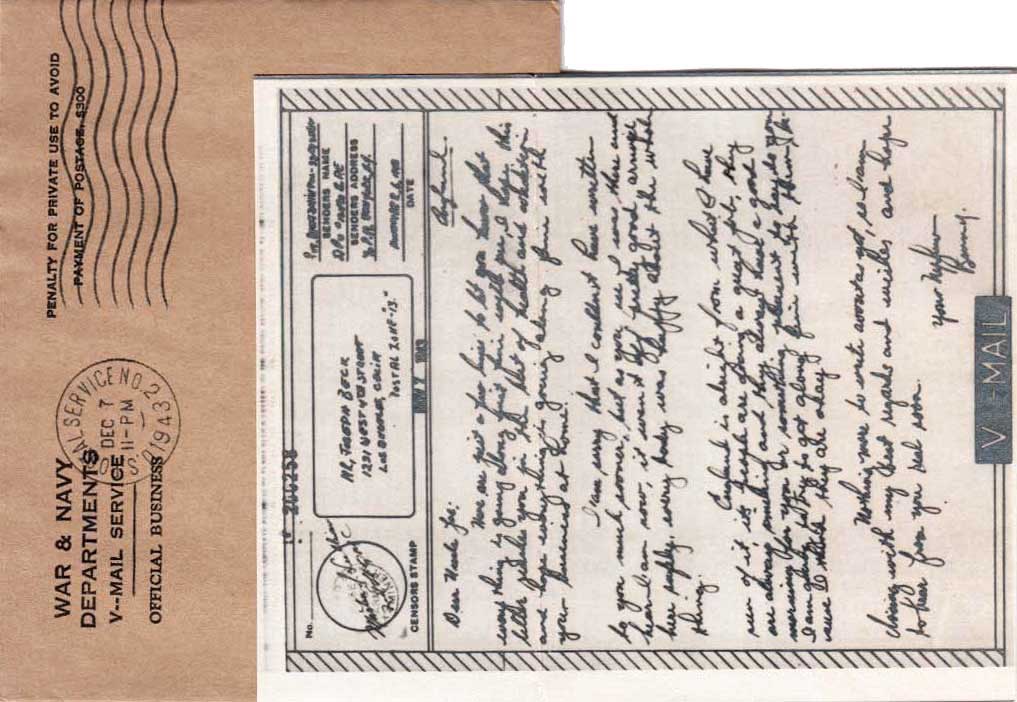 WAR & NAVY
DEPARTMENTS
V--MAIL SERVICE
OFFICIAL BUSINESS
POSTAL SERVICE NO. 2
DEC 7
11-PM
1943
PENALTY FOR PRIVATE USE TO AVOID
PAYMENT OF POSTAGE, $300
200258
No.
CENSORS STAMP
MR. JOSEPH BECK
1231 WEST 47TH STREET
LOS ANGELES, CALIF.
POSTAL ZONE-13.
SENDERS NAME
SENDERS ADDRESS
DATE
England.
Dear Uncle Joe:
Here are just a few lines to let you know that
every thing is going along just fine with me, I hope this
letter finds you in the best of health and
and hope everything is going along fine with
your at home.
I am sorry that I couldn't have written
to you much sooner, but as you see I was there and
here I am now, it seems it all pretty good arrived
here safely, every body was happy about the whole
thing.
England is alright from what I have
seen of it, its people are doing a great job, they
are always smiling and they always have a good
morning for you or something pleasant to say to you
I am gladly to get along fine with them for
sure I think they are okay.
Nothing more to write about as yet, so I am
closing with my best regards and wishes and hope
to hear from you real soon.
Your Nephew
V-MAIL